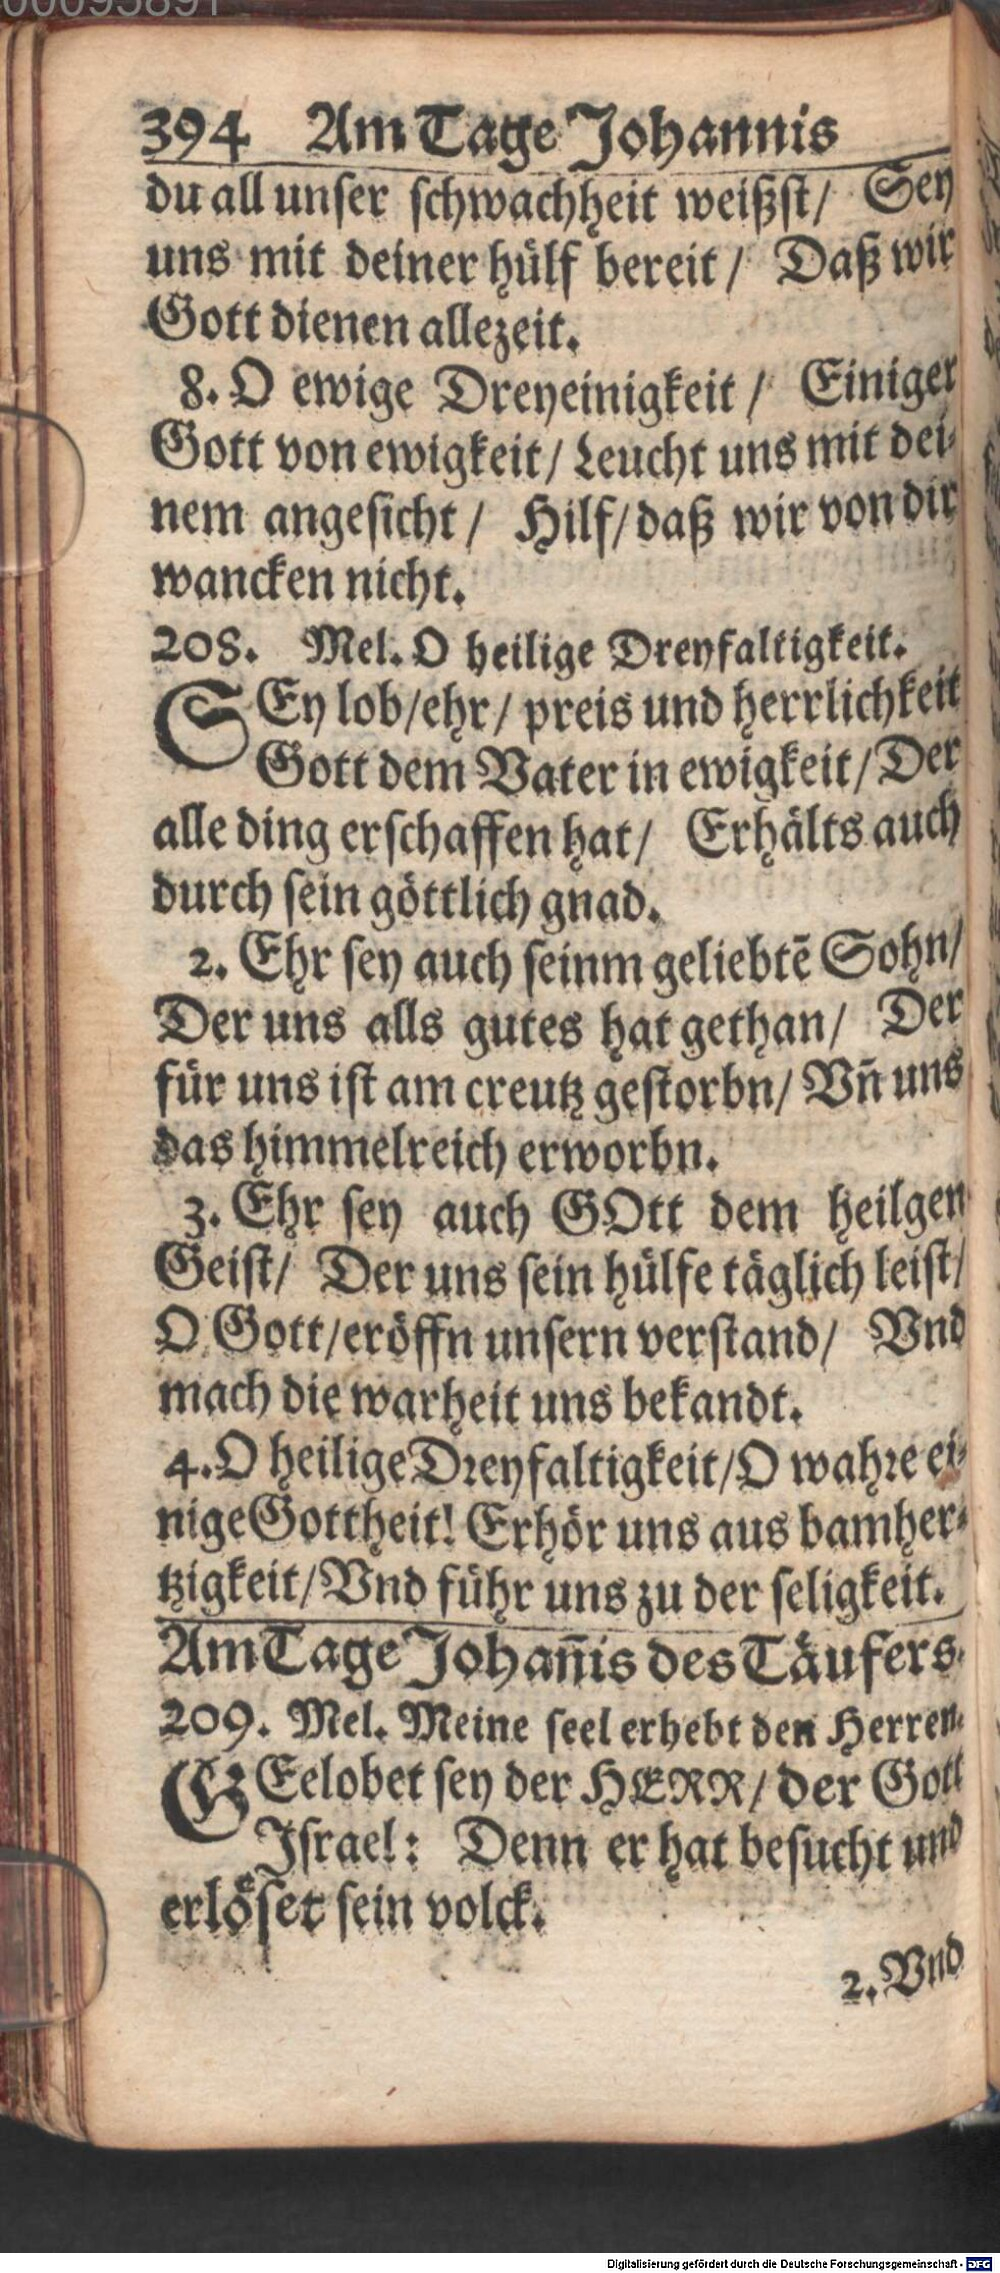 00095891
394 Am Tage Johannis
du all unser schwachheit weißst/ Sey
uns mit deiner hülf bereit/ Daß wir
Gott dienen allezeit.
8. O ewige Dreyeinigkeit/ Einiger
Gott von ewigkeit/ Leucht uns mit dei-
nem angesicht/ Hilf/ daß wir von dir
wancken nicht.
208. Mel. O heilige Dreyfaltigkeit.
SEy lob/ehr/ preis und herrlichkeit
Gott dem Vater in ewigkeit/ Der
alle ding erschaffen hat/ Erhälts auch
durch sein göttlich gnad.
2. Ehr sey auch seinm geliebtē Sohn/
Der uns alls gutes hat gethan/ Der
für uns ist am creutz gestorbn/ Vn̄ uns
das himmelreich erworbn.
3. Ehr sey auch GOtt dem heilgen
Geist/ Der uns sein hülfe täglich leist/
O Gott/eröffn unsern verstand/ Vnd
mach die warheit uns bekandt.
4. O heilige Dreyfaltigkeit/O wahre ei-
nige Gottheit! Erhör uns aus bamher-
tzigkeit/Vnd führ uns zu der seligkeit.
Am Tage Johan̄is des Täufers.
209. Mel. Meine seel erhebt den Herren.
GEelobet sey der HERR/ der Gott
Israel: Denn er hat besucht und
erlöset sein volck.
2. Vnd
Digitalisierung gefördert durch die Deutsche Forschungsgemeinschaft - DFG